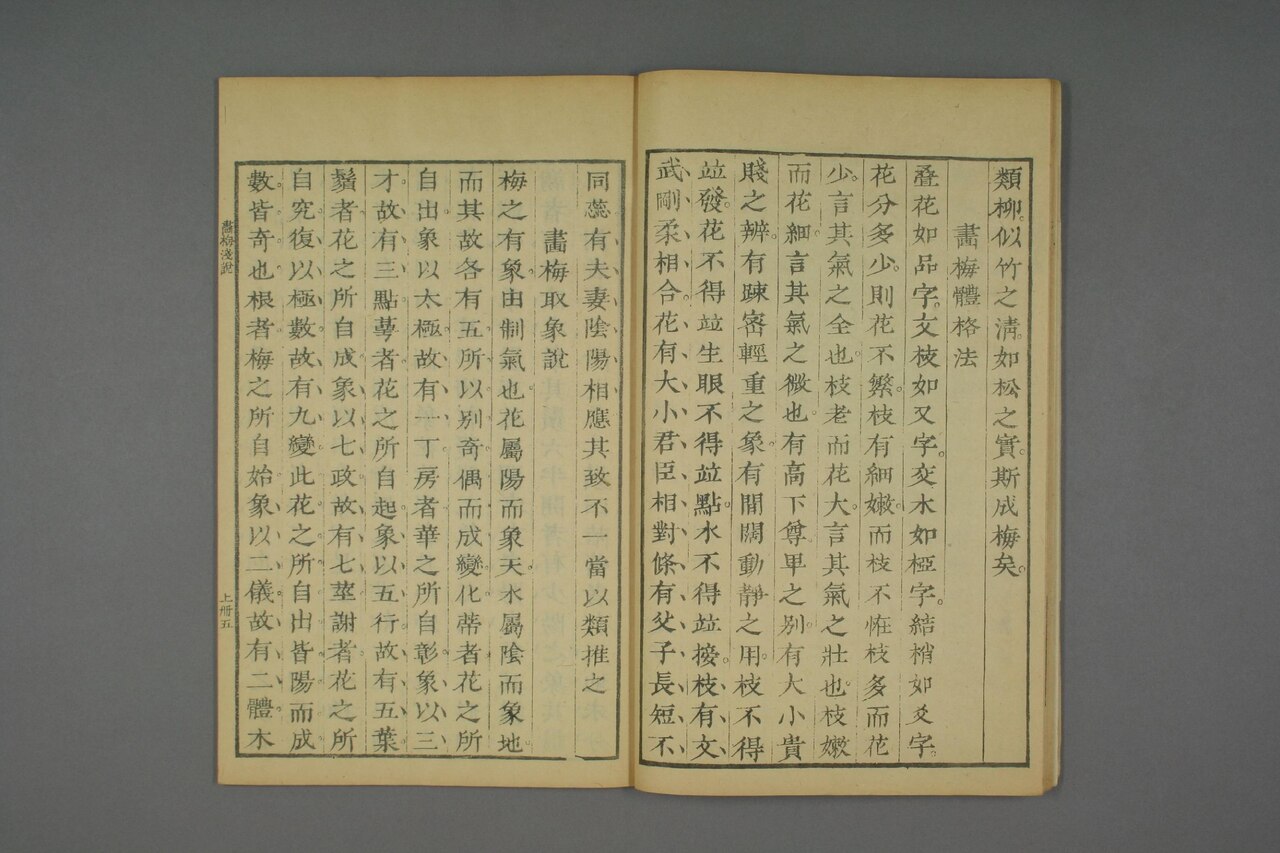 類柳似竹之清。如松之實。斯成梅矣。
畫梅體格法
叠花如品字。交枝如又字。交木如椏字。結梢如爻字。
花分多少。則花不繁。枝有細嫩。而枝不恠。枝多而花
少。言其氣之全也。枝老而花大。言其氣之壯也。枝嫩
而花細。言其氣之微也。有高下尊卑之别。有大小貴
賤之辨。有踈密輕重之象。有閒闊動靜之用。枝不得
竝發。花不得竝生。眼不得竝點。木不得竝接。枝有文
武、剛柔相合。花有大小、君臣相對、條有父子、長短不
同、蕊有夫妻、陰陽相應、其致不一、當以類推之
畫梅取象說
梅之有象。由制氣也。花屬陽而象天。木屬陰而象地。
而其故各有五。所以别奇偶而成變化。蒂者花之所
自出。象以太極。故有一丁。房者華之所自彰。象以三
才。故有三點。萼者花之所自起。象以五行。故有五葉。
鬚者花之所自成。象以七政。故有七莖。謝者花之所
自究。復以極數。故有九變。此花之所自出皆陽。而成
數皆奇也。根者梅之所自始。象以二儀。故有二體。木
畫梅淺說
上册五